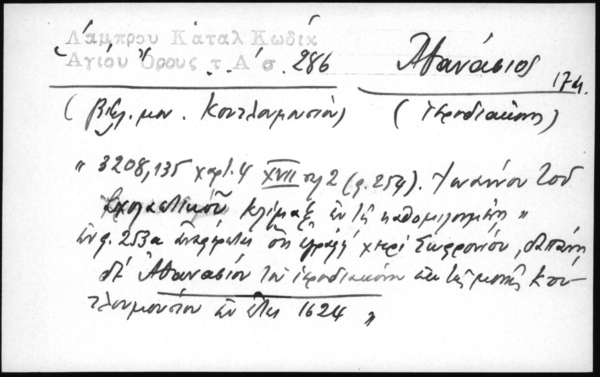 Λάμπρου Καταλ Κωδίκ
Αγίου Όρους τ. Α σ. 286
Ἀθανάσιος
174.
(βιβλ. μον. Κουτλουμουσίου)
(ἱεροδιακόνου)
" 3208,135 χαρτ. 4 XVII 2 (φ. 254). Ἰωάννου τοῦ
Σχολαστικοῦ Κλίμαξ ἐν τῇ καθομιλουμένῃ "
ἐν φ. 253α ἀναφέρεται ὅτι ἐγράφη χειρὶ Σωφρονίου, δαπάνῃ
δὲ Ἀθανασίου τοῦ ἱεροδιακόνου ἐκ τῆς μονῆς Κου-
τλουμουσίου ἐν ἔτει 1624 "